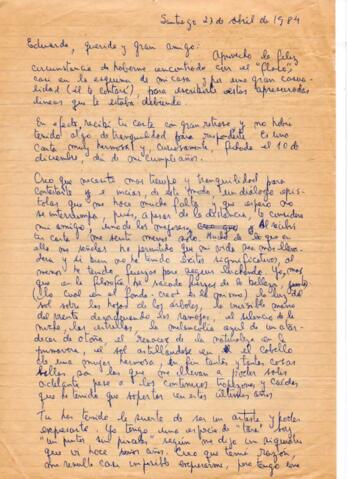 Santiago 27 de Abril de 1984
Eduardo, querido y gran amigo:
Aprovecho la feliz
circunstancia de haberme encontrado con el "Chato",
casi en la esquina de mi casa y por una gran casua-
lidad (él te contará), para escribirte estas apresuradas
líneas que te estaba debiendo.
En efecto, recibí tu carta con gran retraso y no había
tenido algo de tranquilidad para responderte. Es una
carta muy hermosa y, curiosamente, fechada el 10 de
diciembre, día de mi cumpleaños.
Creo que necesito más tiempo y tranquilidad para
contestarte y iniciar, de este modo, un diálogo epis-
tolar que me hace mucha falta, que espero no
se interrumpa, pues, a pesar de la distancia, te considero
mi amigo, uno de los mejores. Al recibir
tu carta me sentí menos solo de lo que en
ella me señalas ha permitido que mi vida sea más lleva-
dera y si bien no he tenido éxitos significativos, al
menos he tenido fuerzas para seguir luchando. Yo, más
que en la filosofía, he sacado fuerzas de la belleza,
(lo cual en el fondo creo es lo mismo) la luz del
sol sobre las hojas de los árboles, la invisible mano
del viento los ramajes, el silencio de la
noche, las estrellas, la melancolía azul de un atar-
decer de otoño, el renacer de la naturaleza en la
primavera, el sol astillándose en el cabello
de una mujer hermosa, en fin, tantas y tantas cosas
bellas, son las que me llevan a poder salir
adelante pese a los continuos tropezones y caídas
que he tenido que soportar en estos últimos años
Tú has tenido la suerte de ser un artista y poder
expresarte. Yo tengo una especie de "tara" soy
"un pintor sin pincel" según me dijo un siquiatra
que vi hace años. Creo que tenía razón,
me resulta casi imposible expresarme, pero tengo una